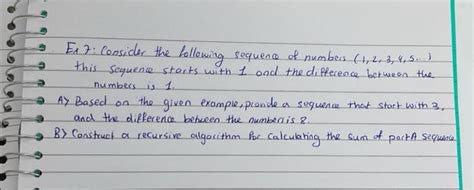 Ex 7: Consider the following sequence of numbers (1, 2, 3, 4, 5...)
this sequence starts with 1 and the difference between the
numbers is 1.
A) Based on the given example, provide a sequence that start with 3,
and the difference between the number is 2.
B) Construct a recursive algorithm for calculating the sum of part A sequence